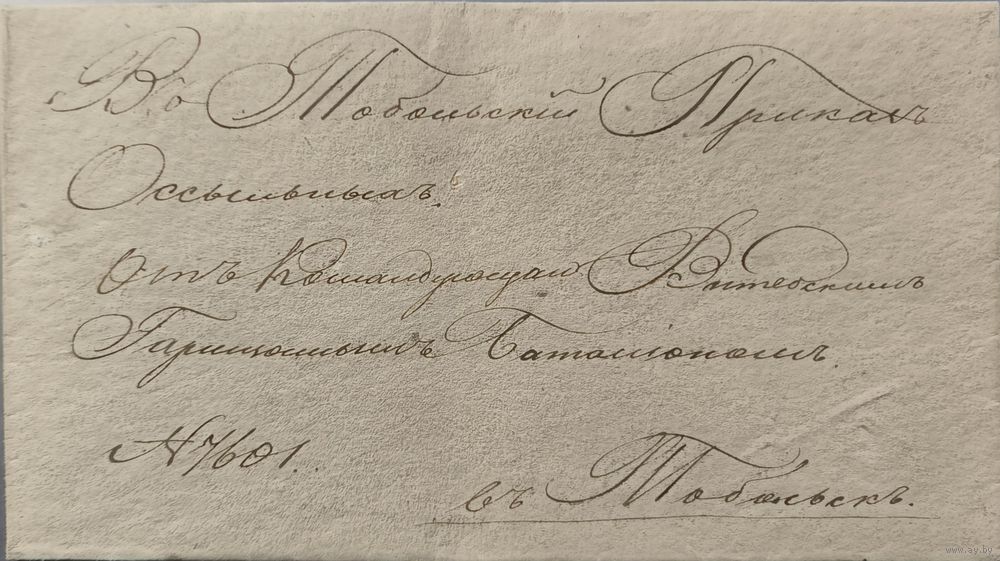 Въ Тобольскій Приказъ
Оссыльныхъ.
Отъ Командующаго Витебскимъ
Гарнизоннымъ Баталіономъ
№ 7601.
въ Тобольскъ.
www.ay.by